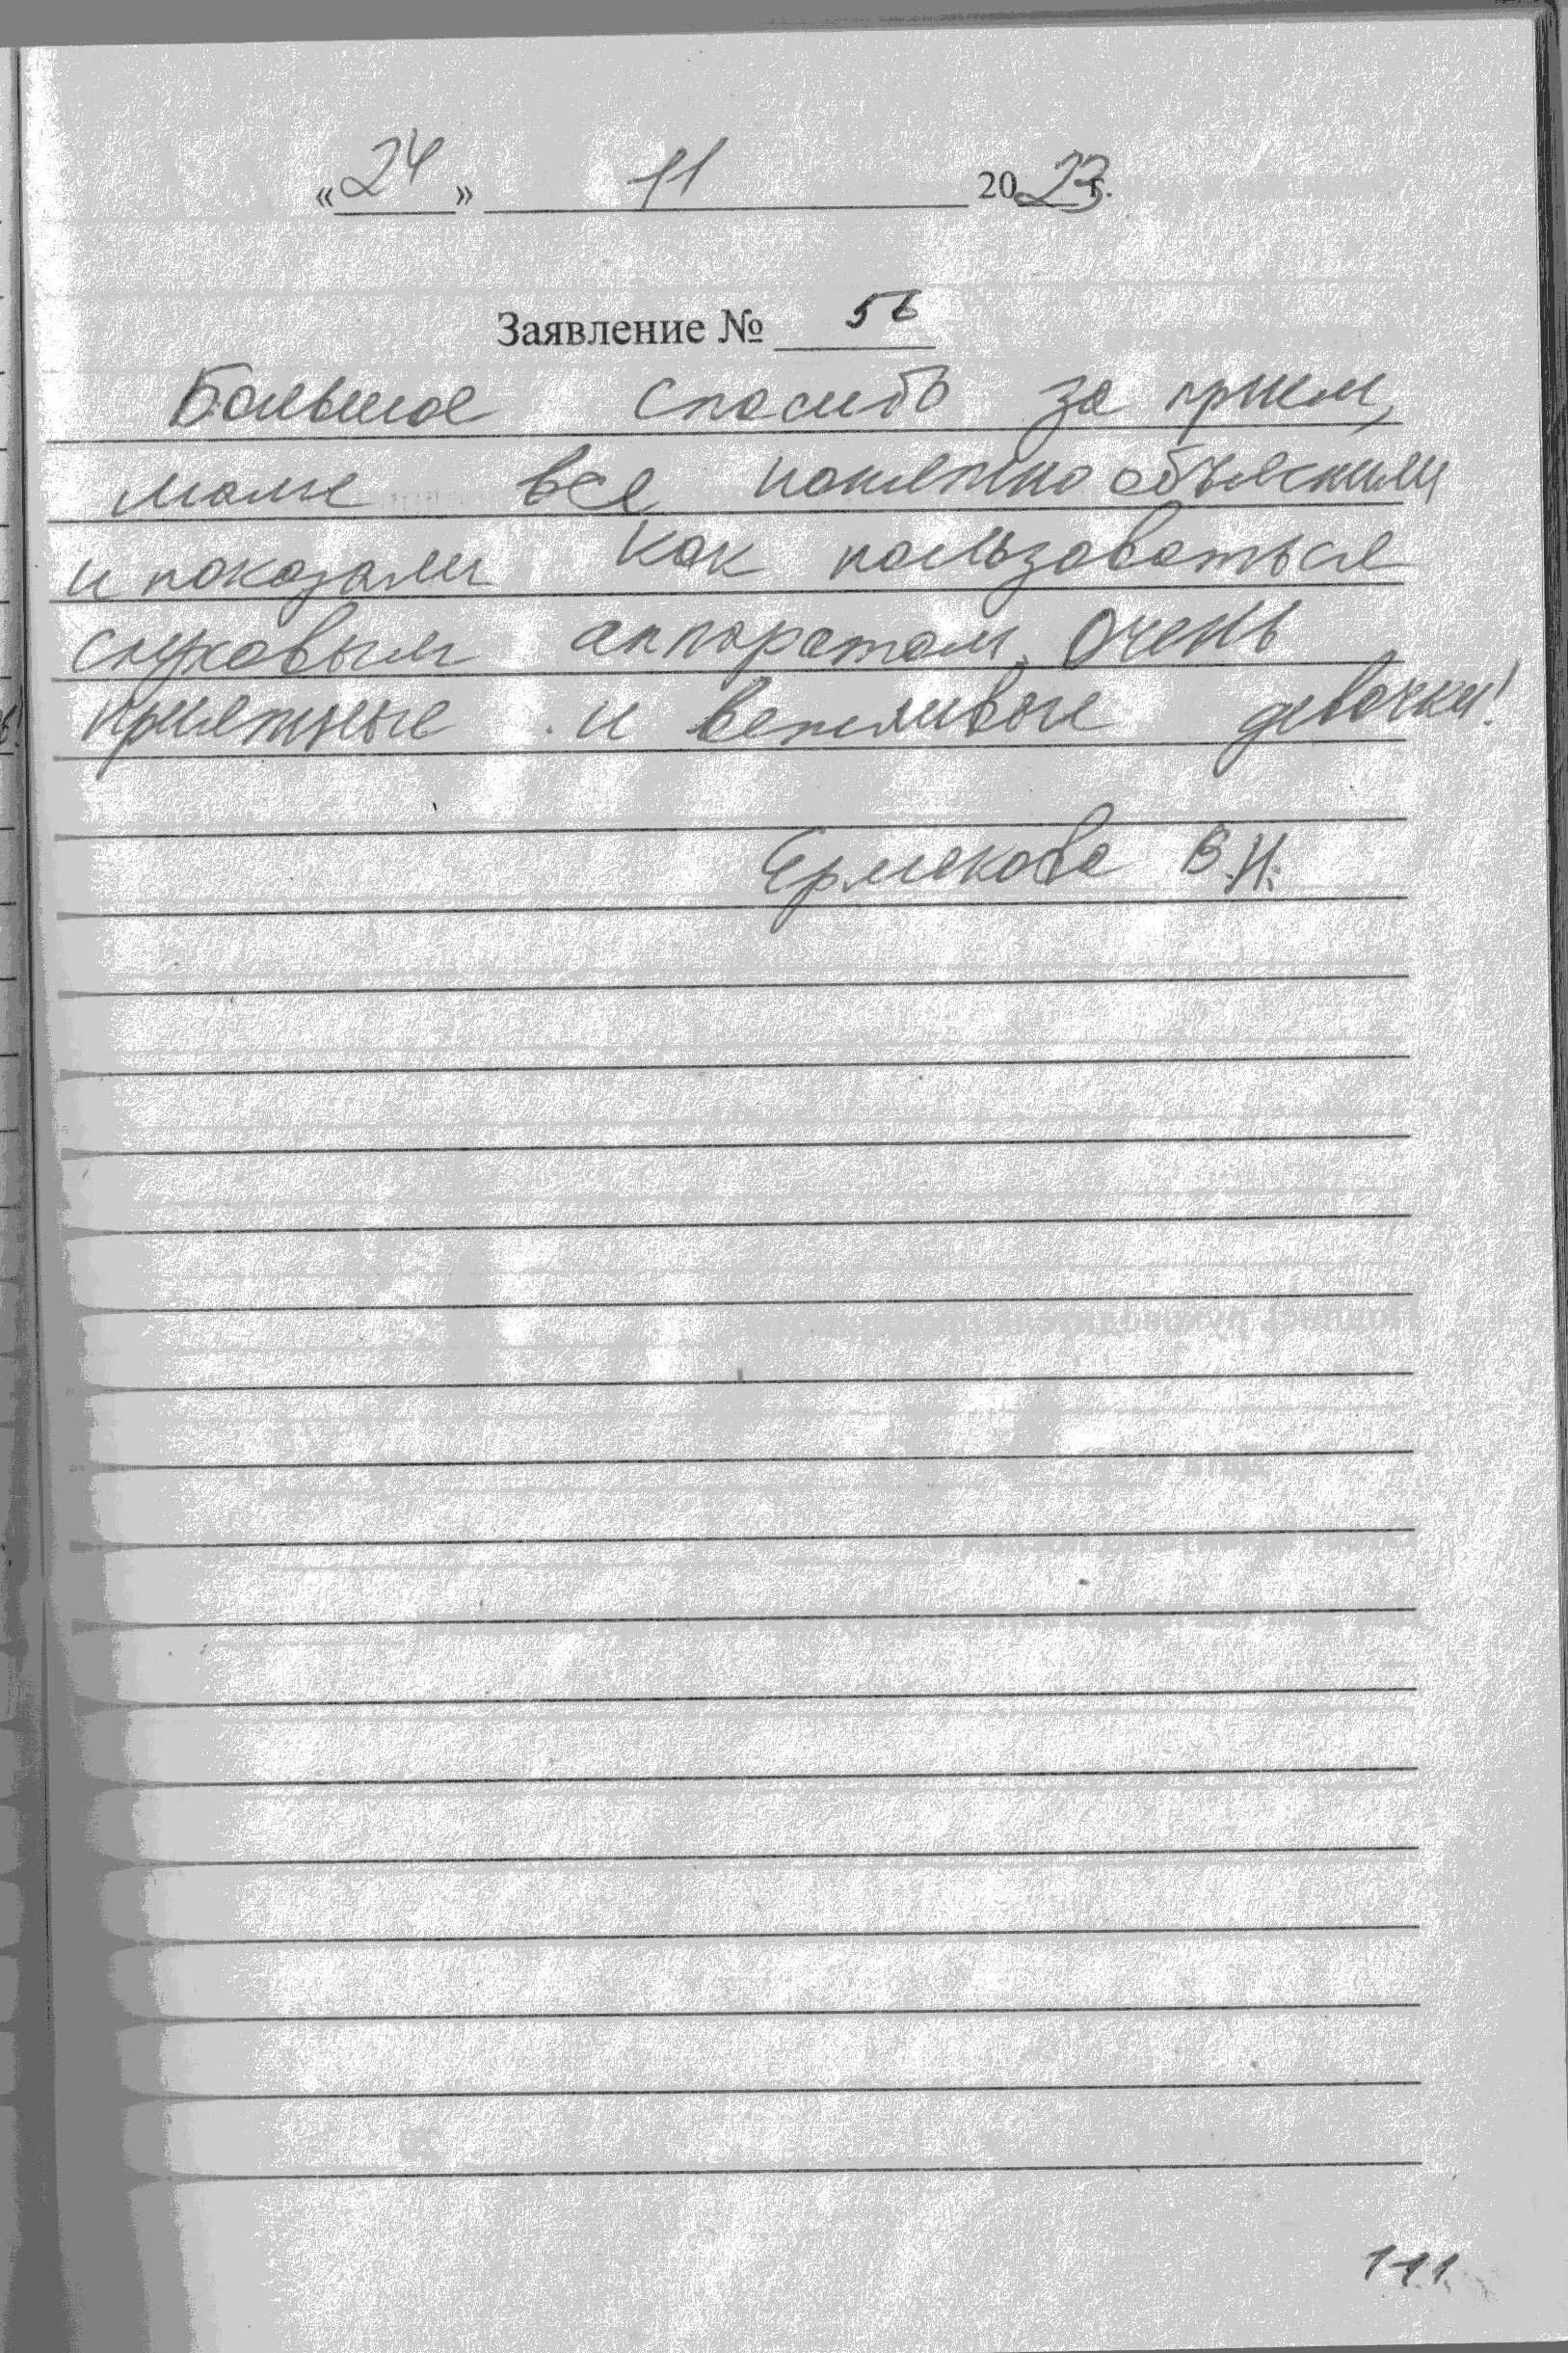 «24» 11 2023 г.
Заявление № 56
Большое спасибо за прием,
маме все понятно объяснили
и показали как пользоваться
слуховым аппаратом. Очень
приятные и вежливые девочки!
Ермакова В.Н.
111